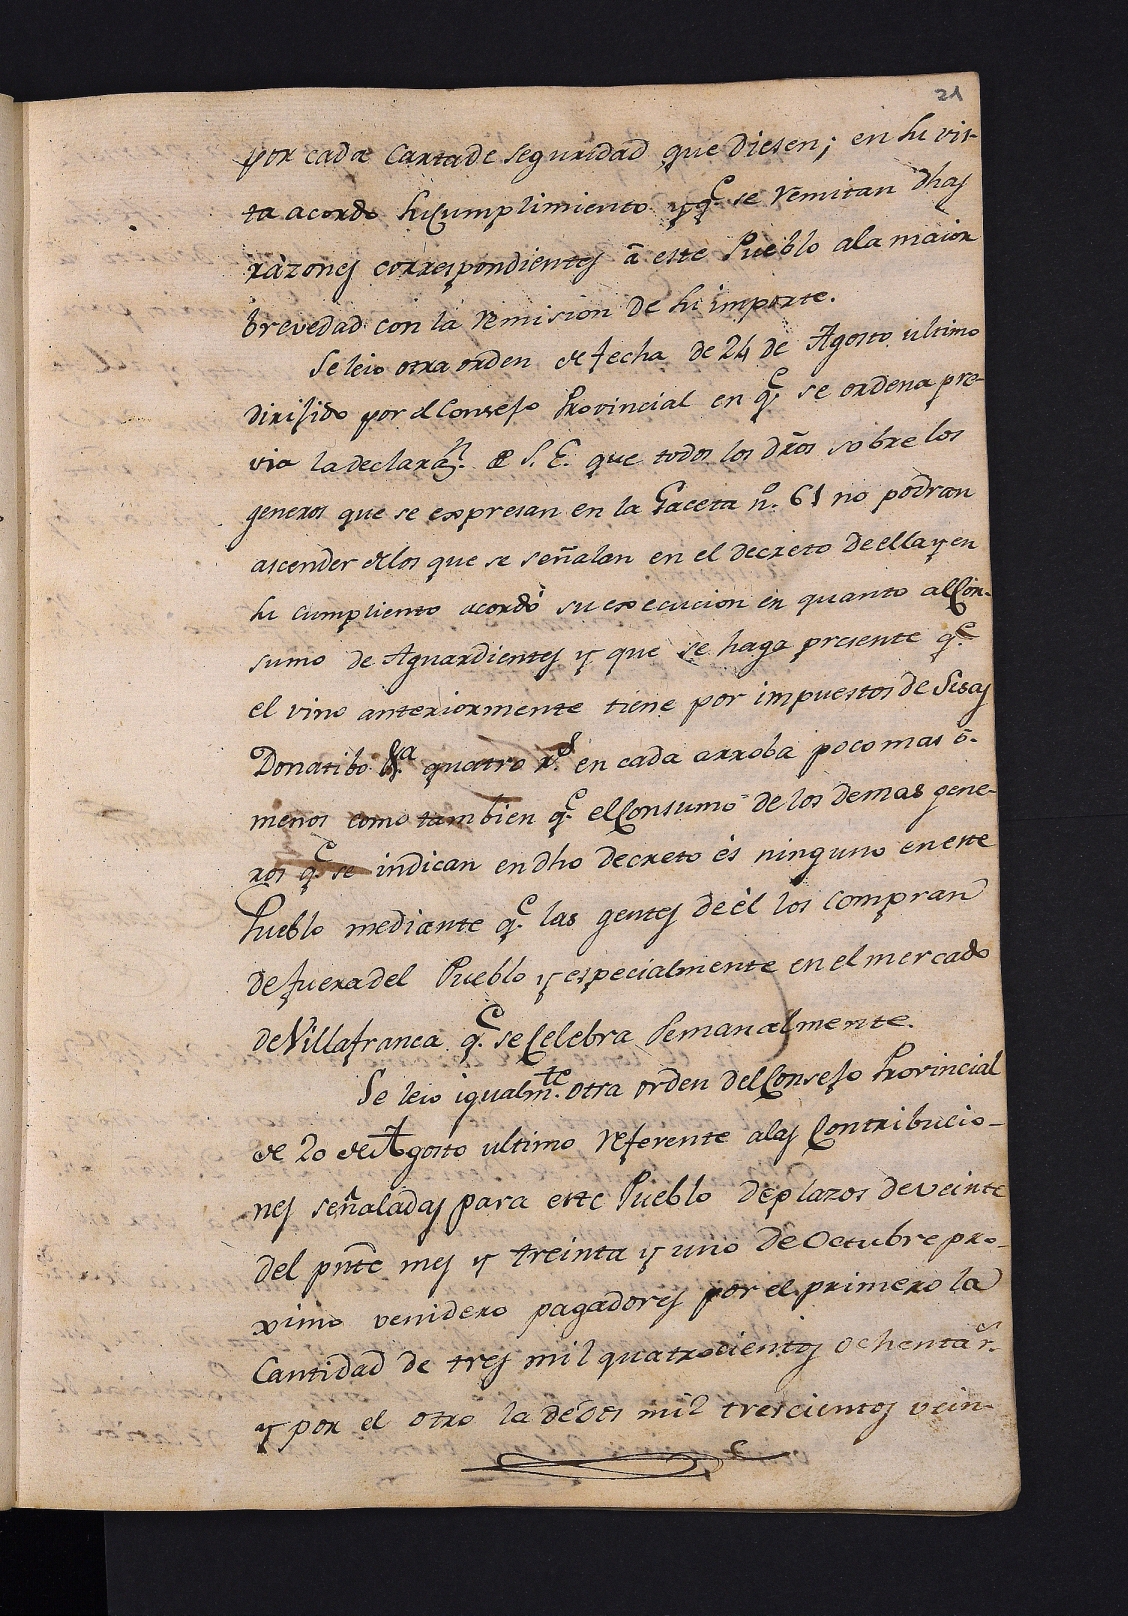 21
por cada Carta de seguridad que diesen; en su vis-
ta acordo su Cumplimiento y q.e se remitan dhas
razones correspondientes â este Pueblo ala maior
brevedad con la remision de su importe.
Se leio otra orden de fecha de 24 de Agosto ultimo
dirijido por el Consejo Provincial en q.e se ordena pre-
via la declaraōn. de S. E. que todos los dr̃os sobre los
generos que se expresan en la Gaceta n.o 61 no podran
ascender de los que se señalan en el decreto de ella y en
su cumpliento acordò su execucion en quanto al Con-
sumo de Aguardientes y que se haga presente q.e
el vino anteriormente tiene por impuestos de Sisas
Donatibo &.a quatro r.s en cada arroba poco mas ô-
menos como tambien q.e el Consumo de los demas gene-
ros q.e se indican en dho decreto és ninguno en este
Pueblo mediante q.e las gentes de èl los compran
de fuera del Pueblo y especialmente en el mercado
de Villafranca q.e se Celebra Semanalmente.
Se leio igualm.te otra orden del Consejo Provincial
de 20 de Agosto ultimo referente alas Contribucio-
nes señaladas para este Pueblo de plazos de veinte
del pnte mes y treinta y uno de Octubre pro-
ximo venidero pagadores por el primero la
Cantidad de tres mil quatrocientos ochenta r.s
y por el otro la de dos mil trescientos vein-